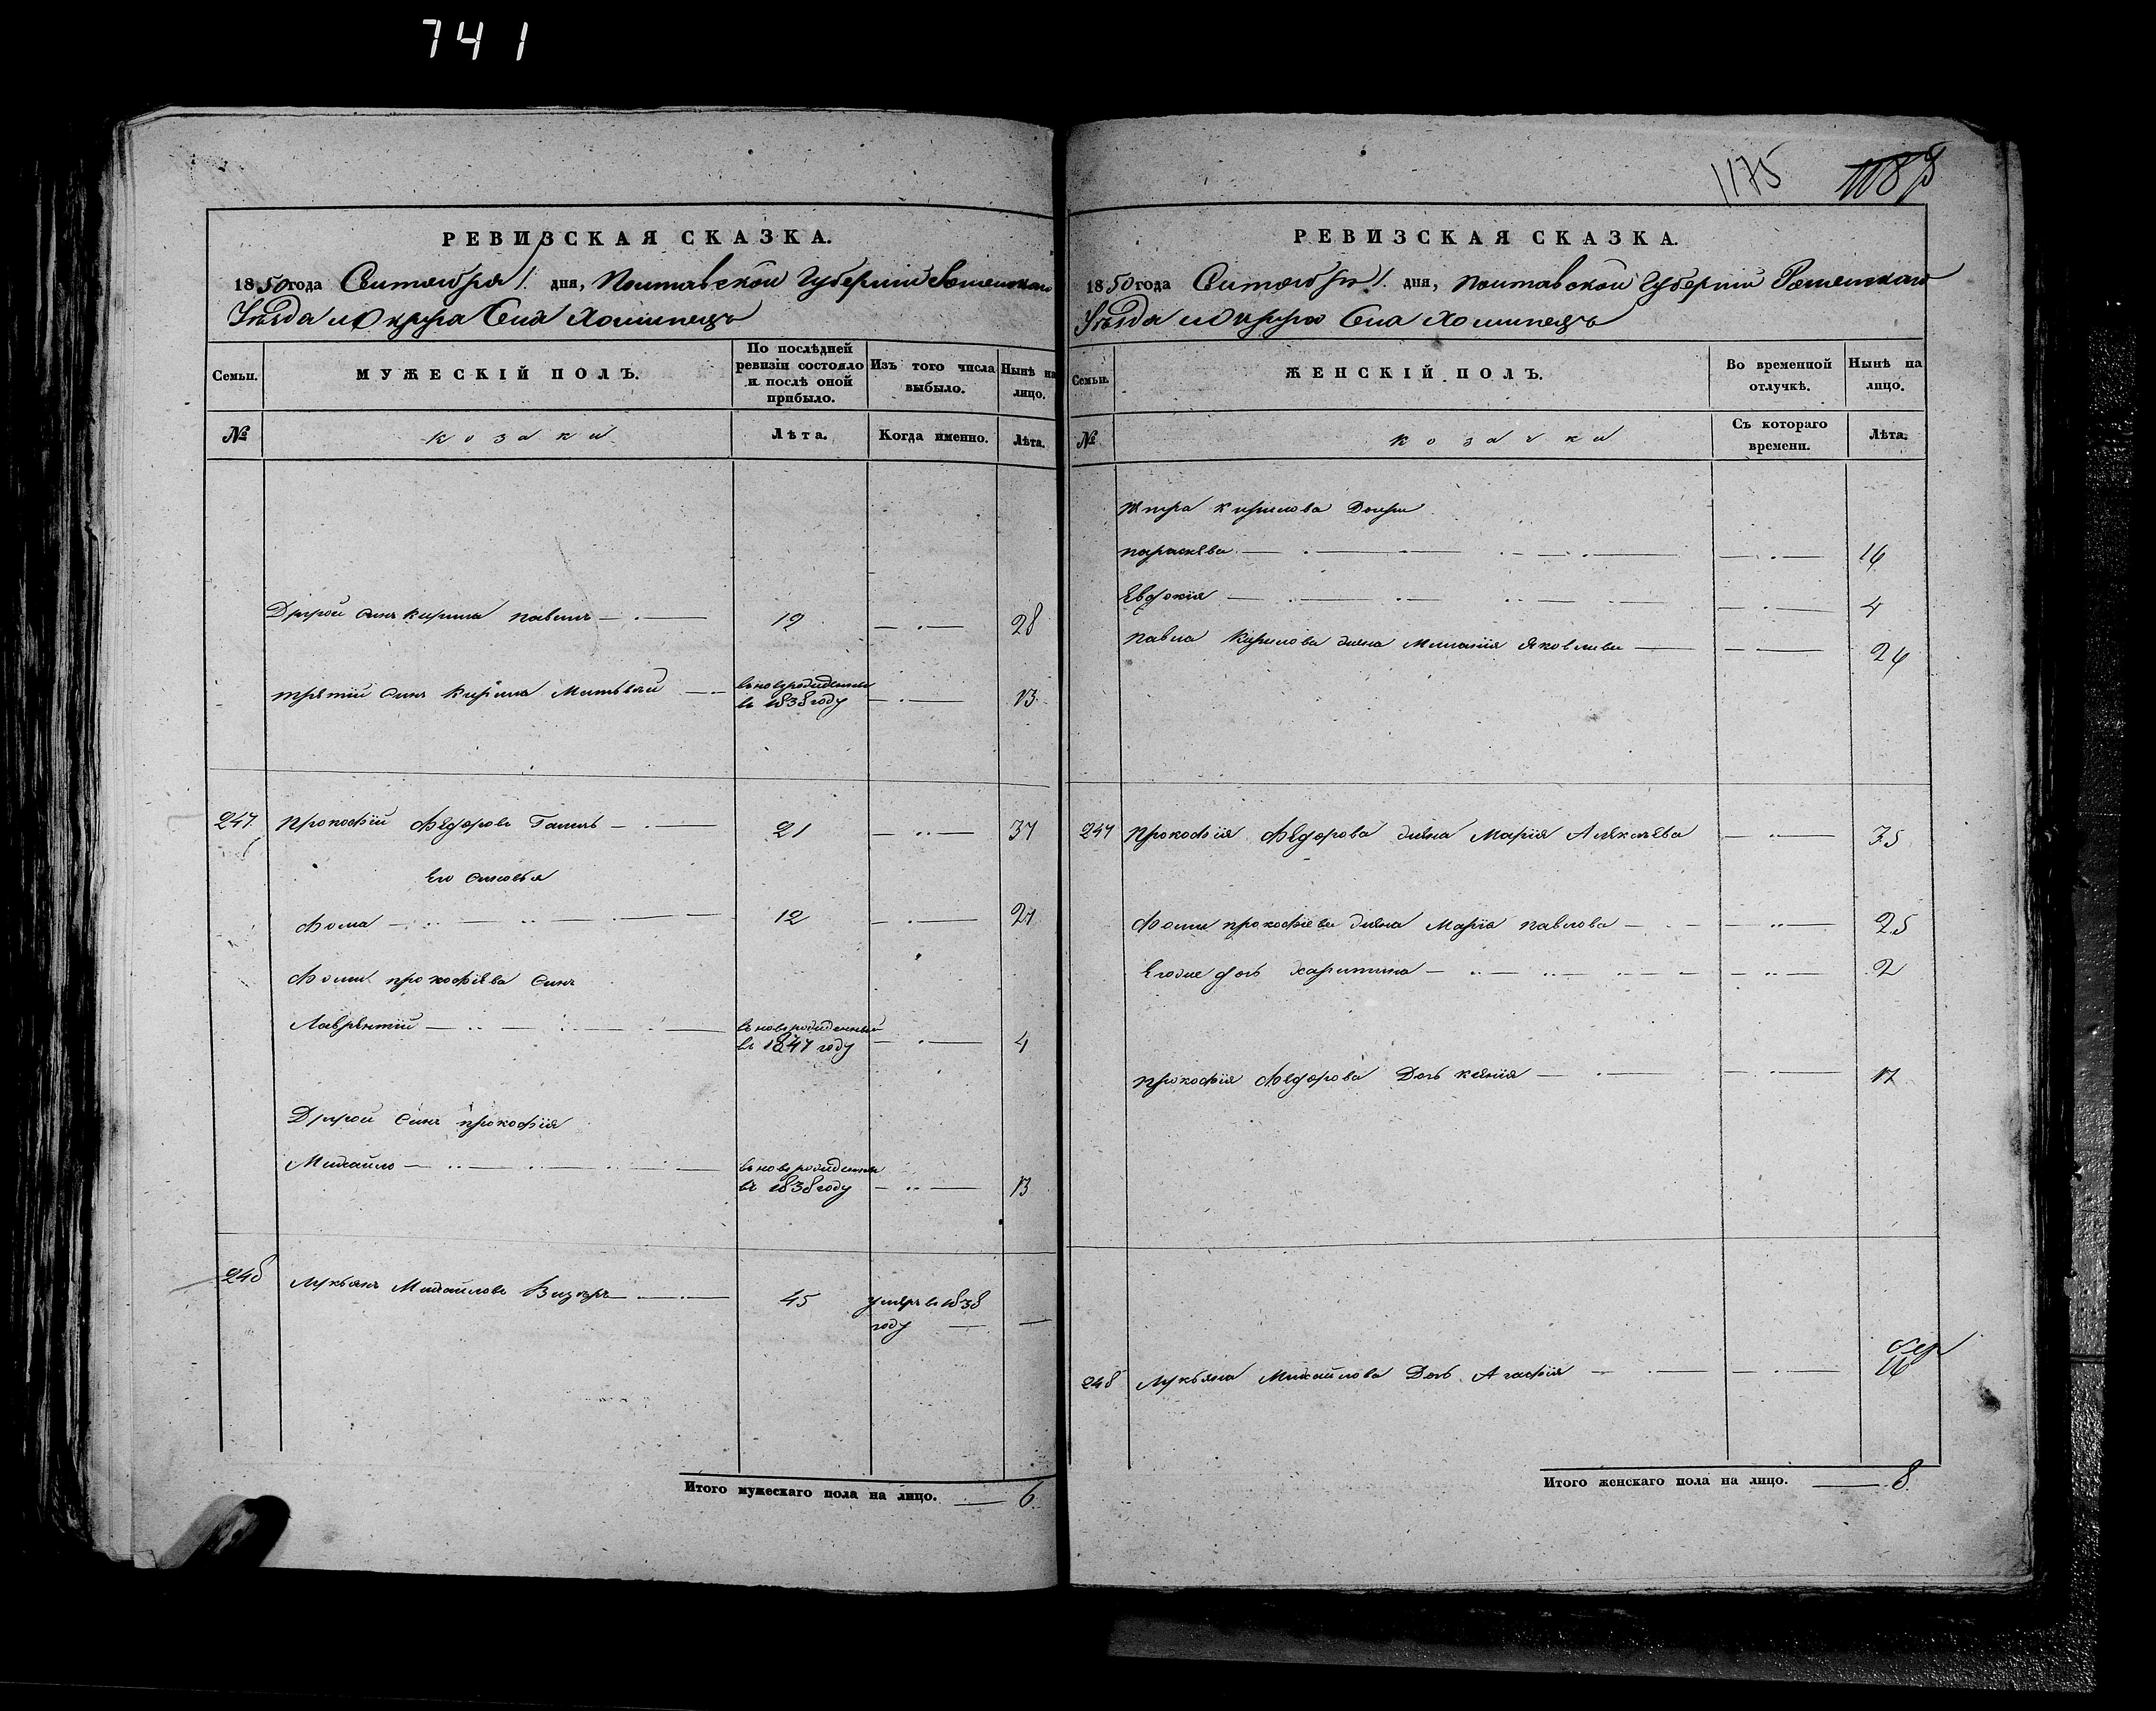 741
РЕВИЗСКАЯ СКАЗКА.
1850 года Сентября 1. дня, Полтавской Губернии Роменскаго
Уезда и Округа Села
По послѣдней ревизіи состояло и послѣ оной прибыло.
Семьи. МУЖЕСКІЙ ПОЛЪ. Изъ того числа выбыло. Нынѣ на лицо.
№ козаки Лѣта. Когда именно. Лѣта.
Другой синъ Кирила Павелъ 19 28
третій синъ Кирила Матвѣй вновьрожденный в 1838 году 13
247 Прокофій Федоровъ 21 37
Его синовья
Фома 12 27
Фоми Прокофіева синъ
Лаврентій вновьрожденный в 1847 году 4
Другой синъ Прокофія
Михайло вновьрожденный в 1838 году 13
248 Лукьянъ Михайловъ 45 умеръ в 1838 году —
Итого мужескаго пола на лицо. 6
1175 1189
РЕВИЗСКАЯ СКАЗКА.
1850 года Сентября 1. дня, Полтавской Губернии Роменскаго
Уезда и Округа Села
Семьи. ЖЕНСКІЙ ПОЛЪ. Во временной отлучкѣ. Нынѣ на лицо.
№ козачки Съ котораго времени. Лѣта.
Петра Кирилова Дочери
Параскева 16
Евдокія 4
Павла Кирилова жена Меланія Яковлева 24
247 Прокофія Федорова жена Марія Алексѣева 35
Фоми Прокофіева жена Марія Павлова 25
Его же дочь Харитина 2
Прокофія Федорова Дочь Ксенія 17
248 Лукьяна Михайлова Дочь Агафія 16
Итого женскаго пола на лицо. 8